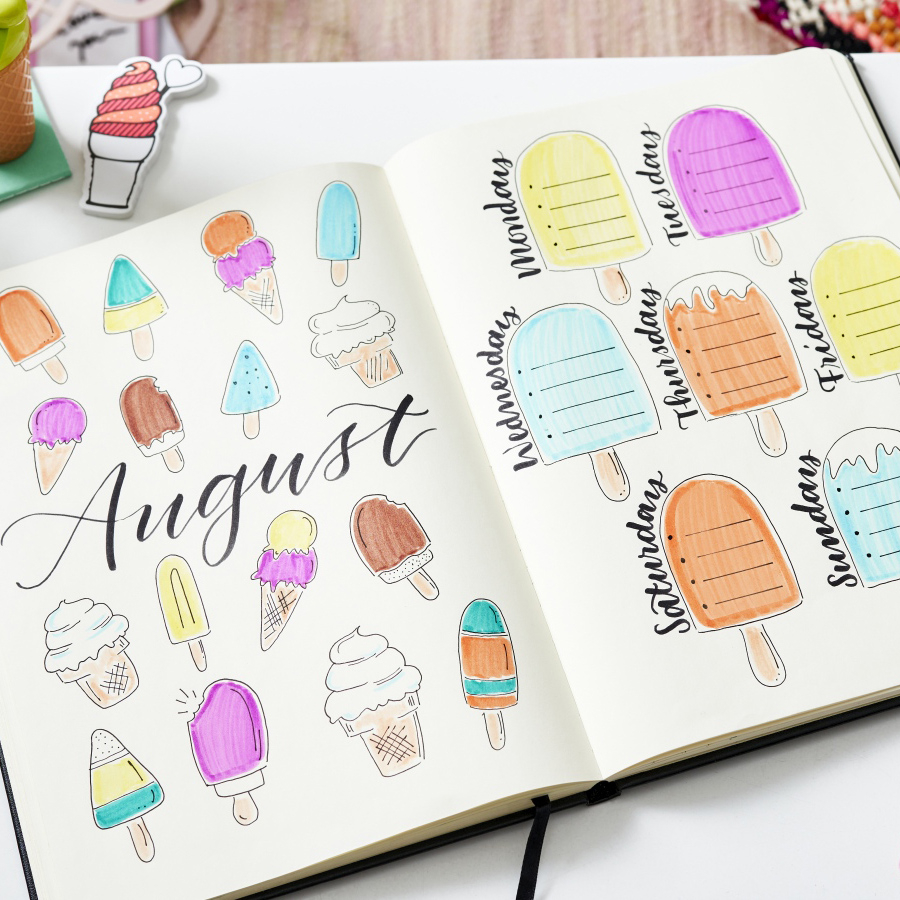 August
Monday
Tuesday
Wednesday
Thursday
Friday
Saturday
Sunday